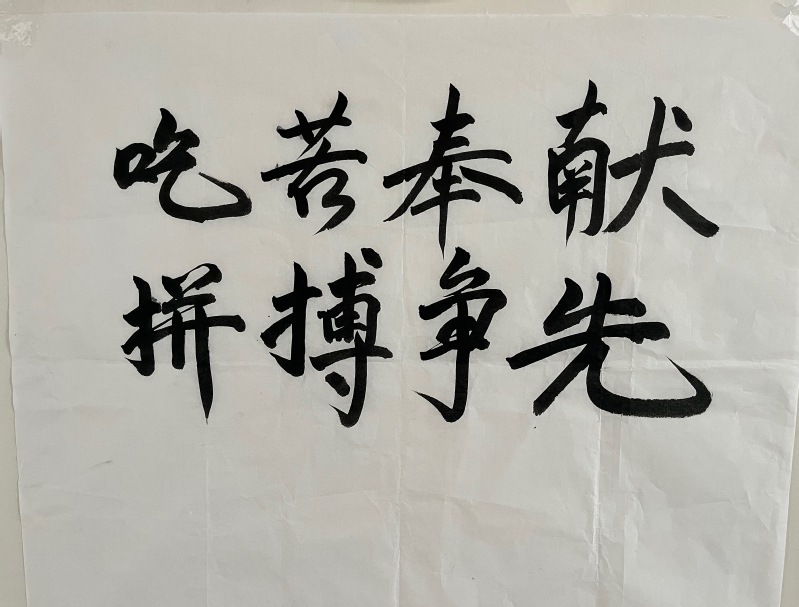 吃苦奉献
拼搏争先